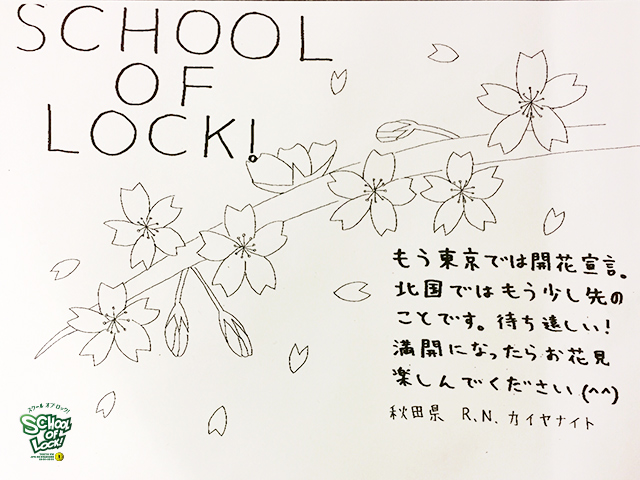 SCHOOL
OF
LOCK!
もう東京では開花宣言。
北国ではもう少し先の
ことです。待ち遠しい!
満開になったらお花見
楽しんでください(^^)
秋田県 R.N. カイヤナイト
スクール オブ ロック!
SCHOOL
OF
LOCK!